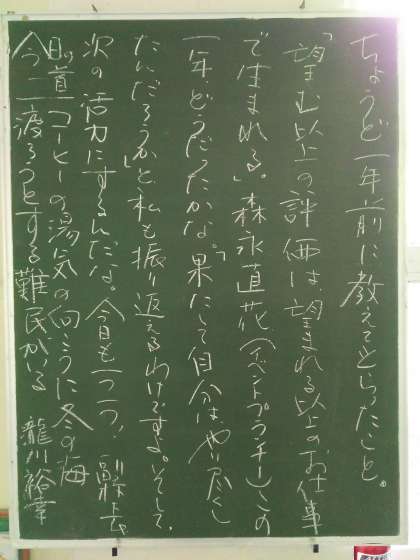 ちょうど一年前に教えてもらったこと。
「望む以上の評価は望まれる以上のお仕事
で生まれる」。森永直花(イベントプランナー)この
一年、どうだったかな。「果たして自分は、やり尽くし
たんだろうか」と、私も振り返えるわけですよ。いそして、
次の活力にするんだな。今日も一つ一つ、
今日の一首 コーヒーの湯気の向こうに冬の海
渡ろうとする難民がいる